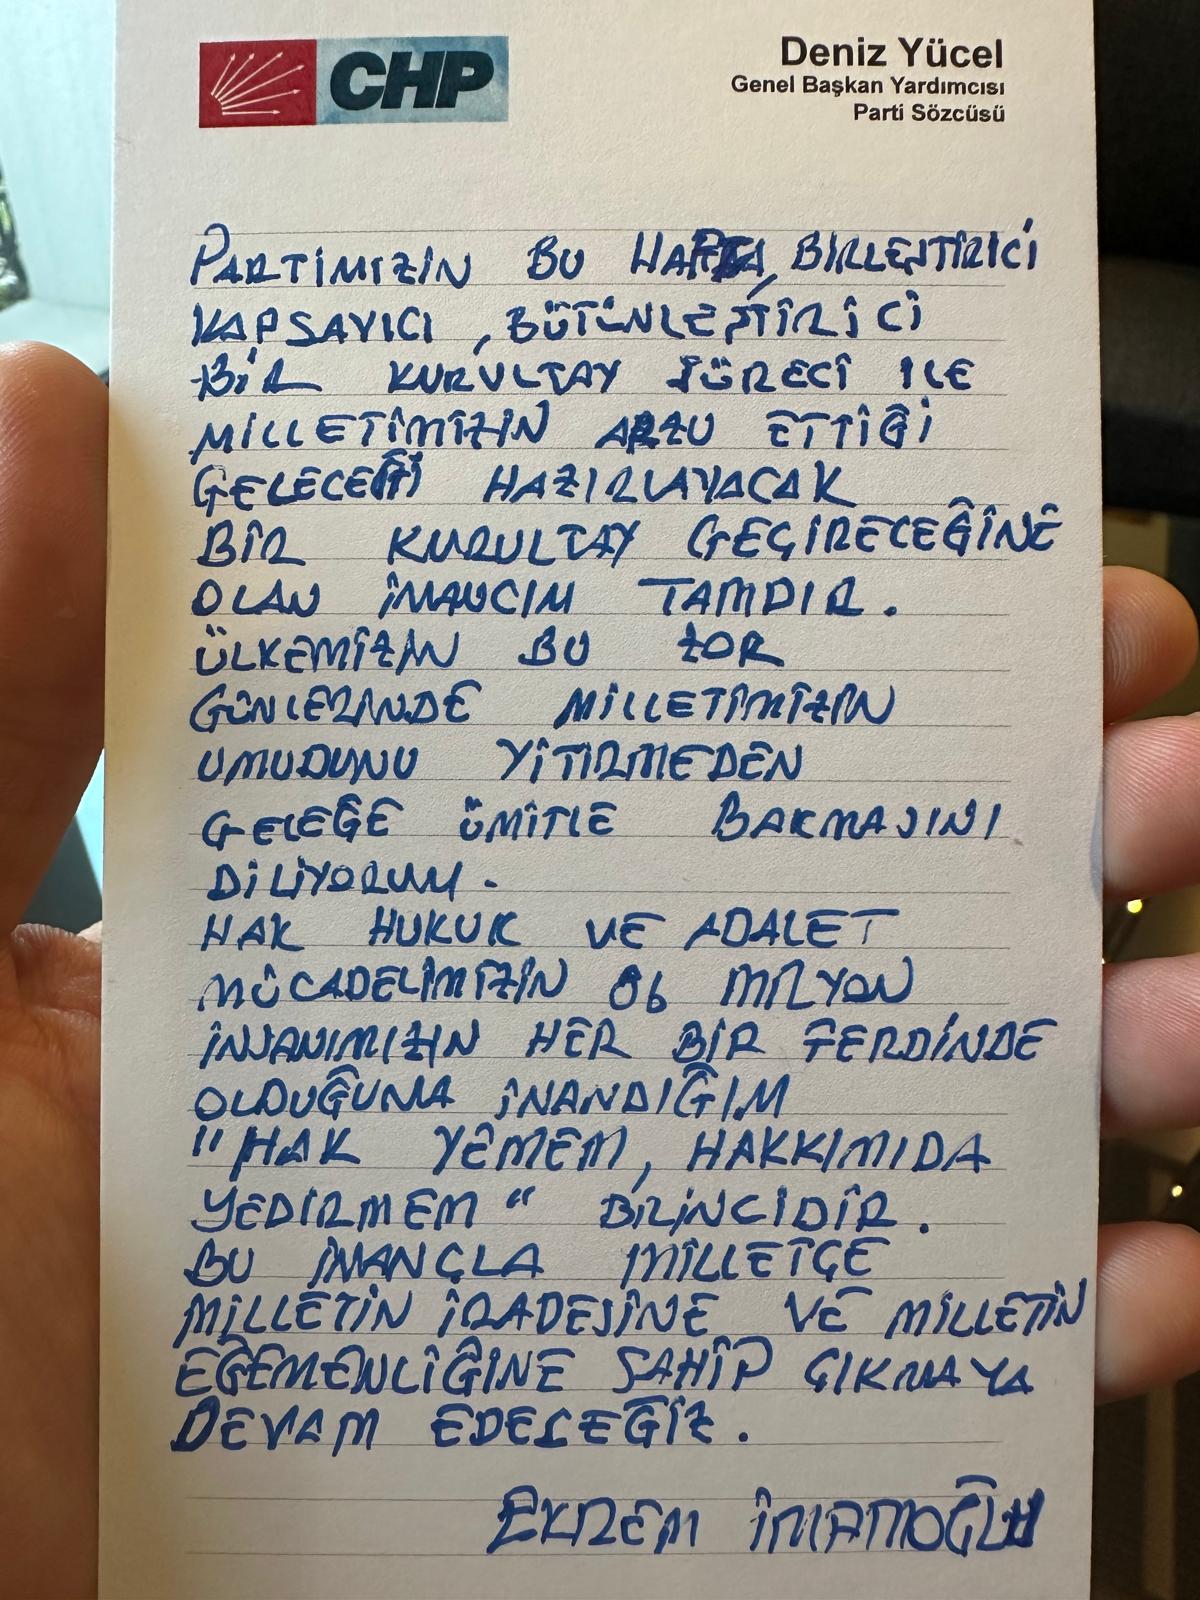 CHP
Deniz Yücel
Genel Başkan Yardımcısı
Parti Sözcüsü
PARTİMİZİN BU HAFTA, BİRLEŞTİRİCİ
KAPSAYICI, BÜTÜNLEŞTİRİCİ
BİR KURULTAY SÜRECİ İLE
MİLLETİMİZİN ARZU ETTİĞİ
GELECEĞİ HAZIRLAYACAK
BİR KURULTAY GEÇİRECEĞİNE
OLAN İNANCIM TAMDIR.
ÜLKEMİZİN BU ZOR
GÜNLERİNDE MİLLETİMİZİN
UMUDUNU YİTİRMEDEN
GELEĞE ÜMİTLE BAKMASINI
DİLİYORUM.
HAK HUKUK VE ADALET
MÜCADELİMİZİN 86 MİLYON
İNSANIMIZIN HER BİR FERDİNDE
OLDUĞUNA İNANDIĞIM
"HAK YEMEM, HAKKIMIDA
YEDİRMEM" BİRİNCİDİR.
BU İNANÇLA MİLLETÇE
MİLLETİN İRADESİNE VE MİLLETİN
EĞEMENLİĞİNE SAHİP ÇIKMAYA
DEVAM EDECEĞİZ.
EKREM İMAMOĞLU